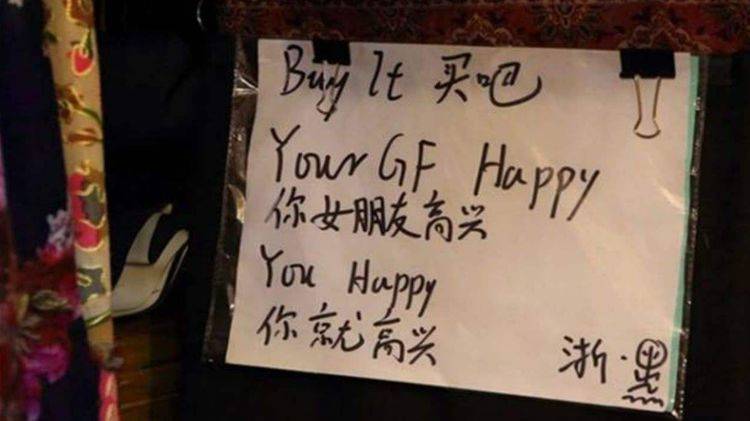 Buy It 买吧
Your GF Happy
你女朋友高兴
You Happy
你就高兴
浙·黑